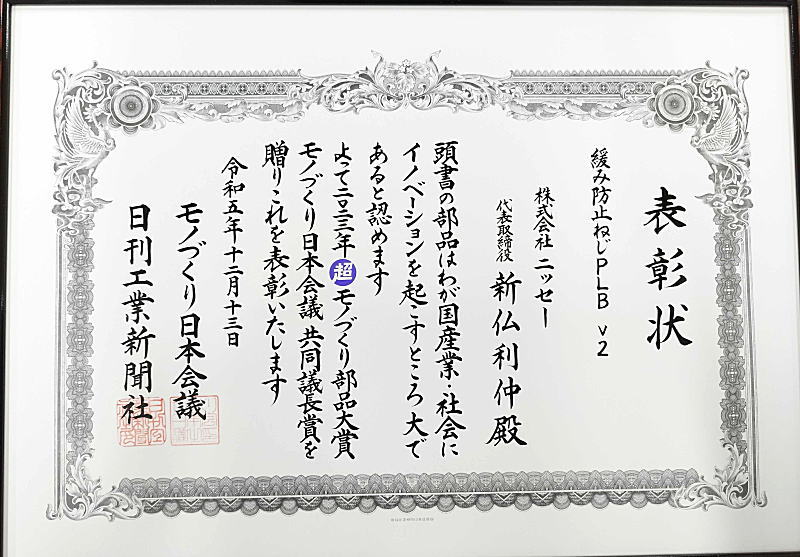 表彰状
緩み防止ねじPLB v2
株式会社 ニッセー
代表取締役 新仏利仲殿
頭書の部品はわが国産業・社会に
イノベーションを起こすところ大で
あると認めます
よって二〇二三年超モノづくり部品大賞
モノづくり日本会議 共同議長賞を
贈りこれを表彰いたします
令和五年十二月十三日
モノづくり日本会議
日刊工業新聞社